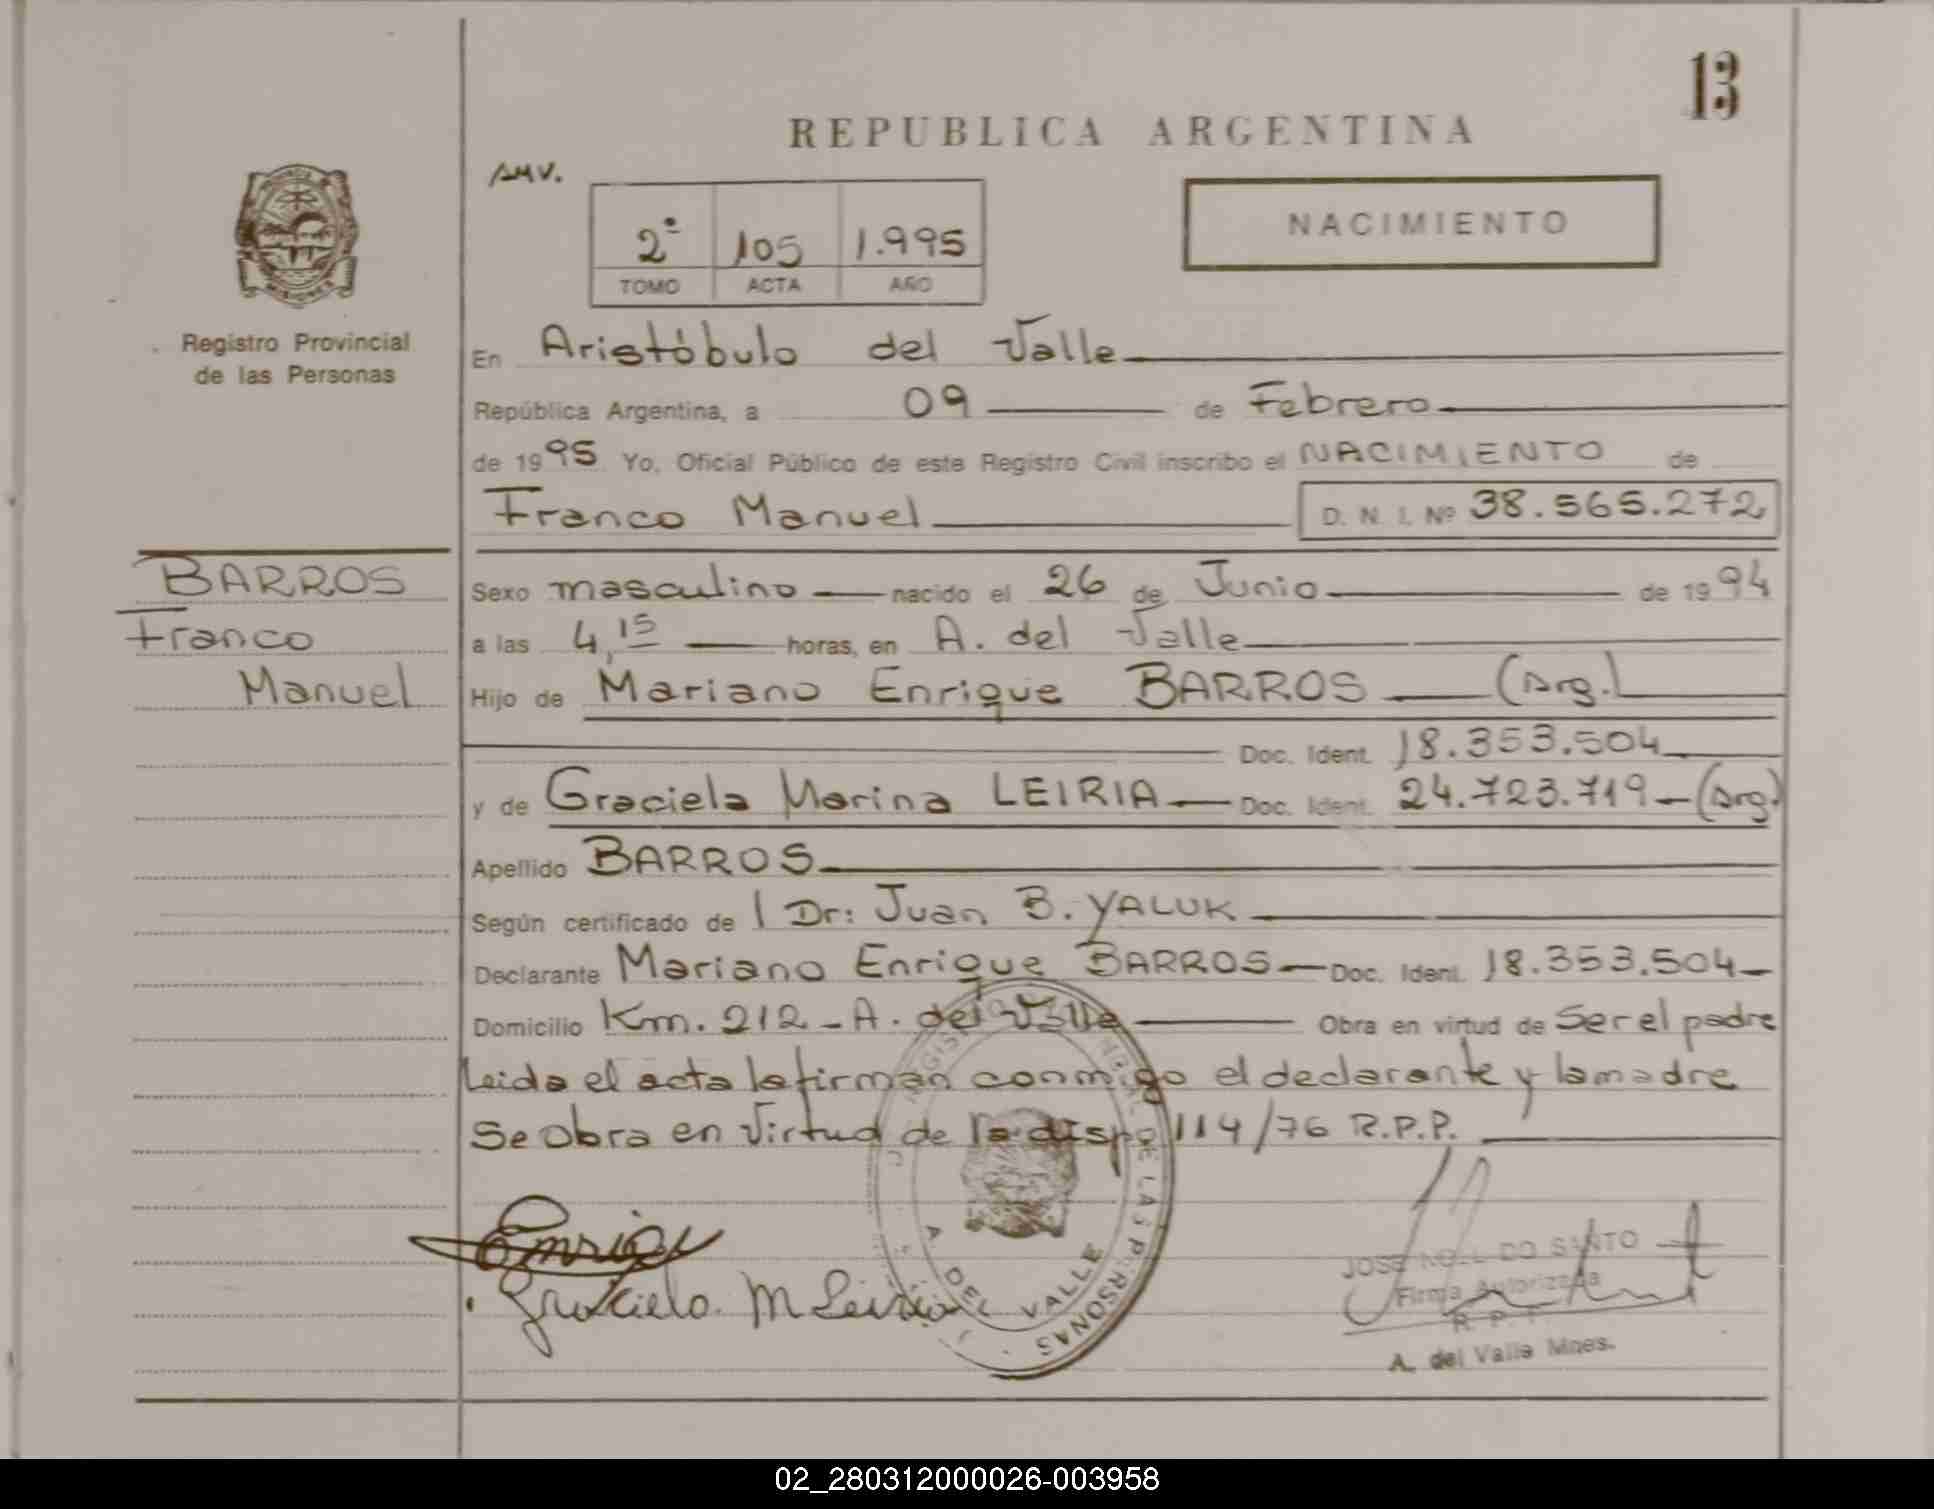 13
REPUBLICA ARGENTINA
AMV.
2º 105 1.995
TOMO ACTA AÑO
NACIMIENTO
MISIONES
Registro Provincial
de las Personas
En Aristóbulo del Valle
República Argentina, a 09 de Febrero
de 1995 Yo, Oficial Público de este Registro Civil inscribo el NACIMIENTO de
Franco Manuel D. N. I. Nº 38.565.272
BARROS
Franco
Manuel
Sexo masculino nacido el 26 de Junio de 1994
a las 4,15 horas, en A. del Valle
Hijo de Mariano Enrique BARROS (Arg.)
Doc. Ident. 18.353.504
y de Graciela Marina LEIRIA Doc. Ident. 24.723.719 - (Arg.)
Apellido BARROS
Según certificado de Dr: Juan B. YALUK
Declarante Mariano Enrique BARROS Doc. Ident. 18.353.504
Domicilio Km. 212 - A. del Valle Obra en virtud de Ser el padre
Leida el acta la firman conmigo el declarante y la madre
Se obra en virtud de la dispo 114/76 R.P.P.
DE LAS PERSONAS
A. DEL VALLE
Graciela M Leiria
JOSE NOEL DO SANTO
Firma Autorizada
R. P. P.
A. del Valle Mnes.
02_280312000026-003958